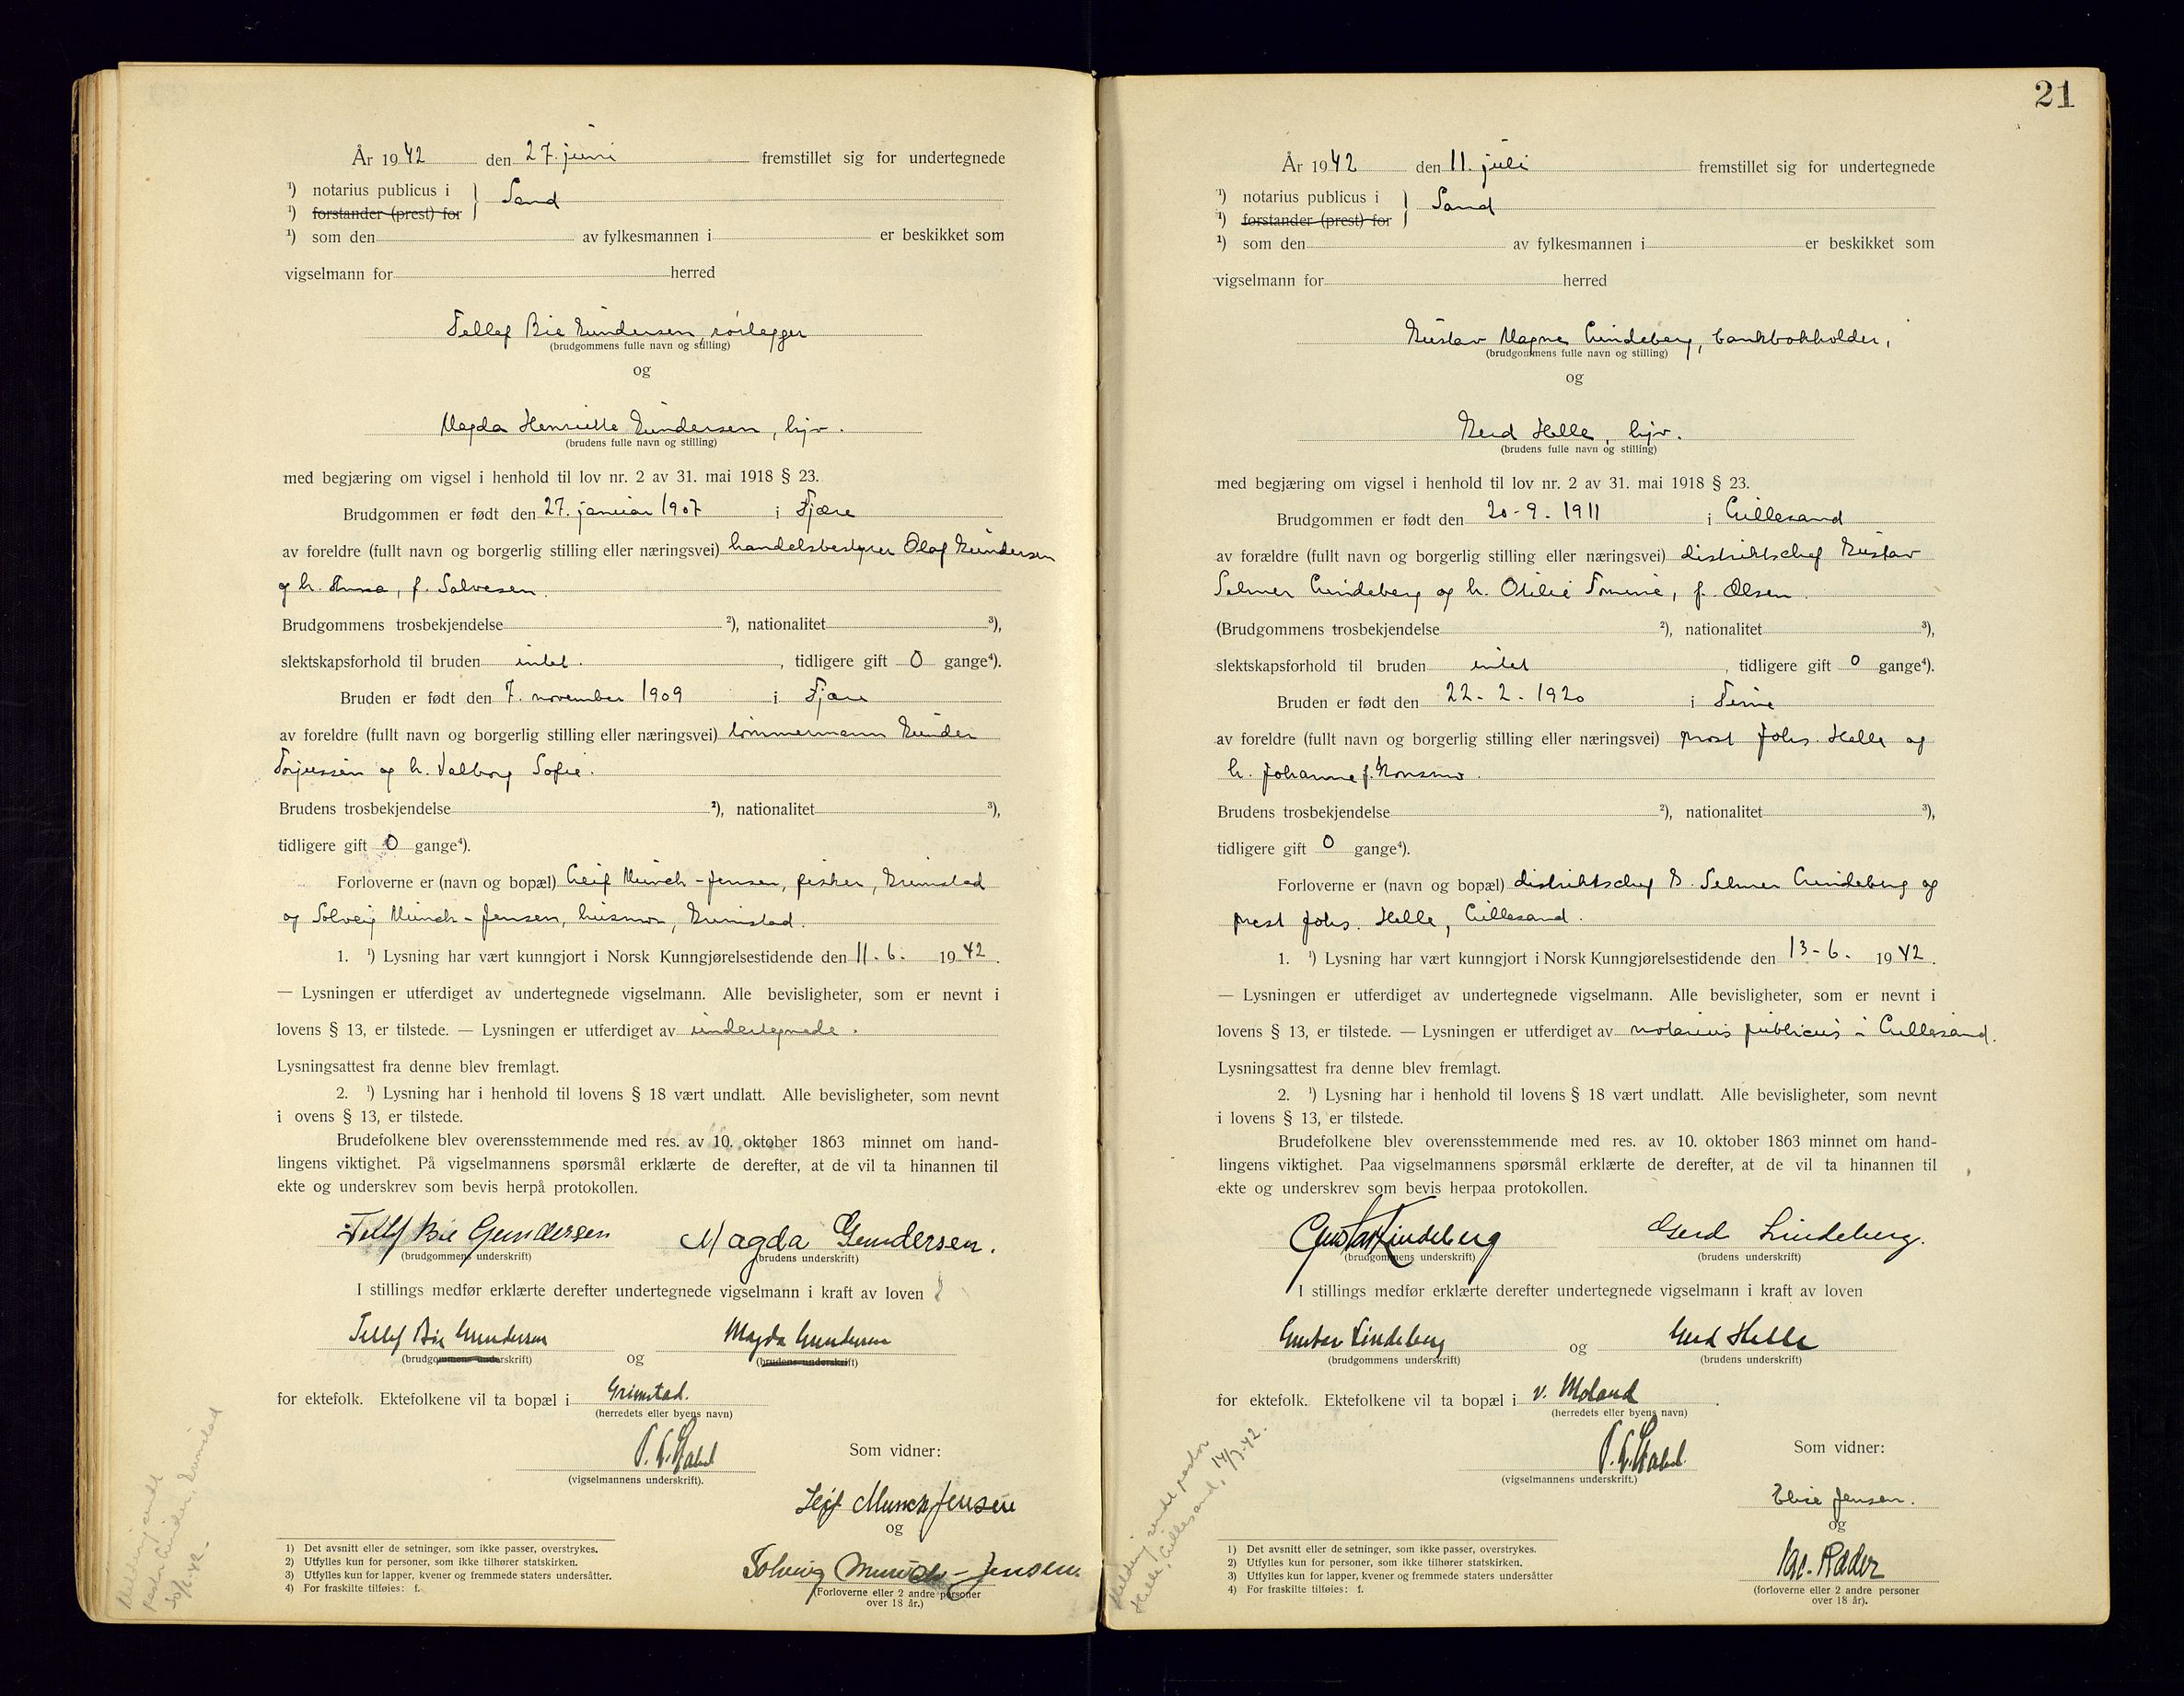 År 1942 den 27. juni fremstillet sig for undertegnede
¹) notarius publicus i } Sand
¹) forstander (prest) for
¹) som den av fylkesmannen i er beskikket som
vigselmann for herred
Tellef Bie Gundersen, rørlegger
(brudgommens fulle navn og stilling)
og
Magda Henriette Gundersen, hjv.
(brudens fulle navn og stilling)
med begjæring om vigsel i henhold til lov nr. 2 av 31. mai 1918 § 23.
Brudgommen er født den 27. januar 1907 i Fjære
av foreldre (fullt navn og borgerlig stilling eller næringsvei) handelsbestyrer Olaf Gundersen
og h. Anna, f. Salvesen.
Brudgommens trosbekjendelse ²), nationalitet ³),
slektskapsforhold til bruden intet. , tidligere gift 0 gange⁴).
Bruden er født den 7. november 1909 i Fjære
av foreldre (fullt navn og borgerlig stilling eller næringsvei) tømmermann Gunder
Torjussen og h. Valborg Sofie.
Brudens trosbekjendelse ²), nationalitet ³),
tidligere gift 0 gange⁴).
Forloverne er (navn og bopæl) Leif Münch-Jensen, fisker, Grimstad
og Solveig Münch-Jensen, husmor, Grimstad.
1. ¹) Lysning har vært kunngjort i Norsk Kunngjørelsestidende den 11.-6. 1942.
— Lysningen er utferdiget av undertegnede vigselmann. Alle bevisligheter, som er nevnt i
lovens § 13, er tilstede. — Lysningen er utferdiget av undertegnede.
Lysningsattest fra denne blev fremlagt.
2. ¹) Lysning har i henhold til lovens § 18 vært undlatt. Alle bevisligheter, som nevnt
i ovens § 13, er tilstede.
Brudefolkene blev overensstemmende med res. av 10. oktober 1863 minnet om hand-
lingens viktighet. På vigselmannens spørsmål erklærte de derefter, at de vil ta hinannen til
ekte og underskrev som bevis herpå protokollen.
Tellf Bie Gundersen Magda Gundersen.
(brudgommens underskrift) (brudens underskrift)
I stillings medfør erklærte derefter undertegnede vigselmann i kraft av loven
Tellef Bie Gundersen og Magda Gundersen
(brudgommens underskrift) (brudens underskrift)
for ektefolk. Ektefolkene vil ta bopæl i Grimstad.
(herredets eller byens navn)
(vigselmannens underskrift).
Som vidner:
Leif Munch Jensen
og
Solveig Munch-Jensen.
(Forloverne eller 2 andre personer
over 18 år.)
1) Det avsnitt eller de setninger, som ikke passer, overstrykes.
2) Utfylles kun for personer, som ikke tilhører statskirken.
3) Utfylles kun for lapper, kvener og fremmede staters undersåtter.
4) For fraskilte tilføies: f.
Melding sendt
30/6-42.
21
År 1942 den 11. juli fremstillet sig for undertegnede
¹) notarius publicus i } Sand
¹) forstander (prest) for
¹) som den av fylkesmannen i er beskikket som
vigselmann for herred
Gustav Magne Lindeberg, bankbokholder,
(brudgommens fulle navn og stilling)
og
Gerd Helle, hjv.
(brudens fulle navn og stilling)
med begjæring om vigsel i henhold til lov nr. 2 av 31. mai 1918 § 23.
Brudgommen er født den 20-9-1911 i Lillesand
av forældre (fullt navn og borgerlig stilling eller næringsvei) distriktschef Gustav
Selmer Lindeberg og h. Otilie Tomine, f. Olsen.
(Brudgommens trosbekjendelse ²), nationalitet ³),
slektskapsforhold til bruden intet , tidligere gift 0 gange⁴).
Bruden er født den 22-2-1920 i
av foreldre (fullt navn og borgerlig stilling eller næringsvei) prost Johs. Helle og
h. Johanne f.
Brudens trosbekjendelse ²), nationalitet ³),
tidligere gift 0 gange⁴).
Forloverne er (navn og bopæl) distriktschef G. Selmer Lindeberg og
prest Johs. Helle, Lillesand.
1. ¹) Lysning har vært kunngjort i Norsk Kunngjørelsestidende den 13-6- 1942.
— Lysningen er utferdiget av undertegnede vigselmann. Alle bevisligheter, som er nevnt i
lovens § 13, er tilstede. — Lysningen er utferdiget av notarius publicus i Lillesand.
Lysningsattest fra denne blev fremlagt.
2. ¹) Lysning har i henhold til lovens § 18 vært undlatt. Alle bevisligheter, som nevnt
i lovens § 13, er tilstede.
Brudefolkene blev overensstemmende med res. av 10. oktober 1863 minnet om hand-
lingens viktighet. Paa vigselmannens spørsmål erklærte de derefter, at de vil ta hinannen til
ekte og underskrev som bevis herpaa protokollen.
Gustav Lindeberg Gerd Lindeberg.
(brudgommens underskrift) (brudens underskrift)
I stillings medfør erklærte derefter undertegnede vigselmann i kraft av loven
Gustav Lindeberg og Gerd Helle
(brudgommens underskrift) (brudens underskrift)
for ektefolk. Ektefolkene vil ta bopæl i v. Moland.
(herredets eller byens navn)
(vigselmannens underskrift.)
Som vidner:
Elise Jensen.
og
(forloverne eller 2 andre personer
over 18 år).
1) Det avsnitt eller de setninger, som ikke passer, overstrykes.
2) Utfylles kun for personer, som ikke tilhører statskirken.
3) Utfylles kun for lapper, kvener og fremmede staters undersåtter
4) For fraskilte tilføies: f.
Melding sendt pastor
Helle, Lillesand, 14/7-42.